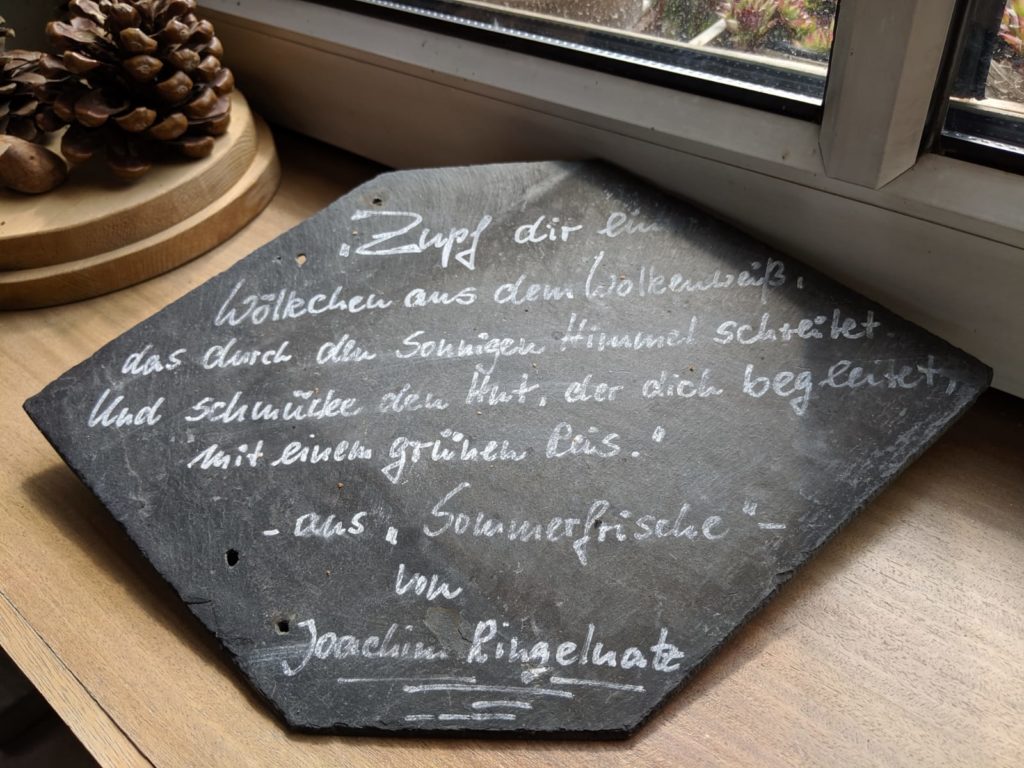 „Zupf dir ein
Wölkchen aus dem Wolkenweiß,
das durch den sonnigen Himmel schreitet.
Und schmücke den Hut, der dich begleitet,
mit einem grünen Reis."
- aus „Sommerfrische" -
von
Joachim Ringelnatz